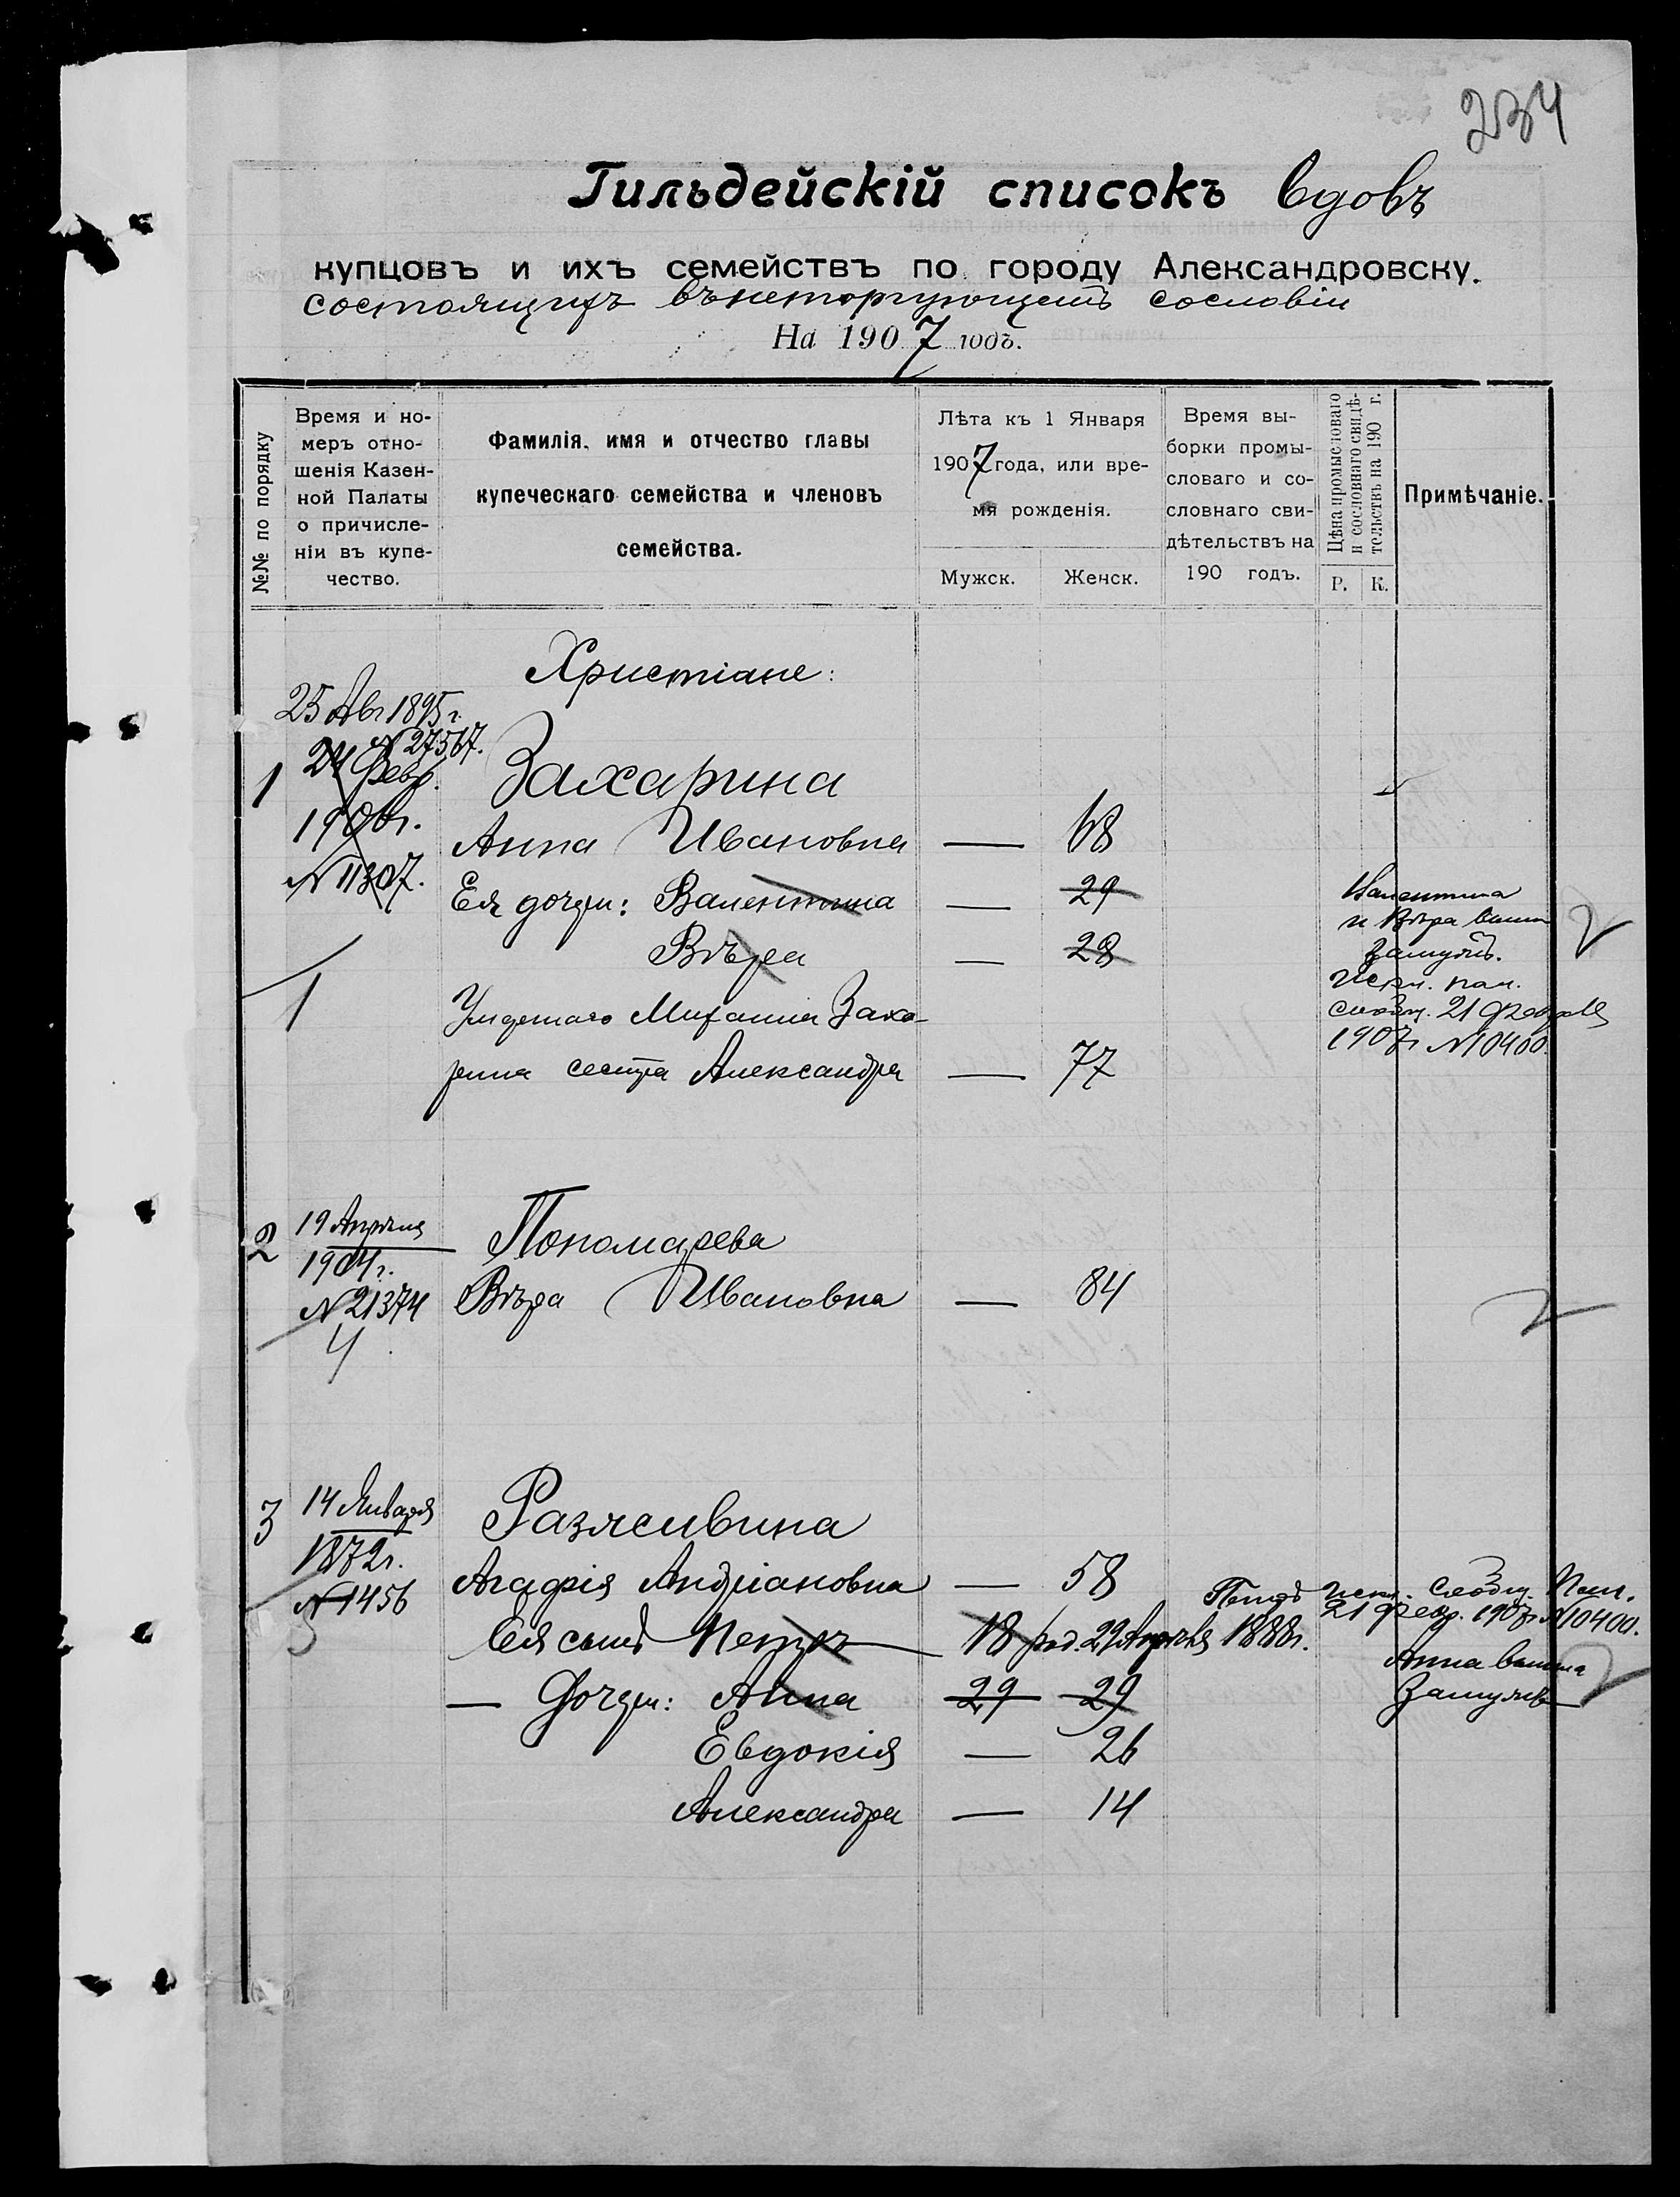 234
Гильдейскій списокъ вдовъ
купцовъ и ихъ семействъ по городу Александровску.
состоящихъ въ неторгующемъ сословіи
На 1907 годъ.
№№ по порядку
Время и но-
меръ отно-
шенія Казен-
ной Палаты
о причисле-
ніи въ купе-
чество.
Фамилія, имя и отчество главы
купеческаго семейства и членовъ
семейства.
Лѣта къ 1 Января
1907 года, или вре-
мя рожденія.
Мужск. Женск.
Время вы-
борки промы-
словаго и со-
словнаго сви-
дѣтельствъ на
190 годъ.
Цѣна промысловаго
и сословнаго свидѣ-
тельствъ на 190 г.
Р. К.
Примѣчаніе.
Христіане:
25 Авг 1895 г.
№ 27567.
1 24 Февр. Захарина
1906 г.
Анна Ивановна — 68
№ 11307.
Ея дочери: Валентина — 29
Вѣра — 28
Валентина
и Вѣра вышли
замужъ.
Искл. пал.
сообщ. 21 Февраля
1907 г № 10400.
1
Умершаго Михаила Заха-
рина сестра Александра — 77
2 19 Апрѣля Пономарева
1904 г.
№ 21374 Вѣра Ивановна — 84
4
3 14 Января Разясивина
1872 г.
Агафія Андріановна — 58
№ 1456
Ея сынъ Петръ 18 род. 29 Апрѣля 1888 г.
Петръ искл. сообщ. Пал.
21 Февр. 1907 г № 10400.
— Дочери: Анна 29 29
Анна вышла
замужъ
Евдокія — 26
Александра — 14